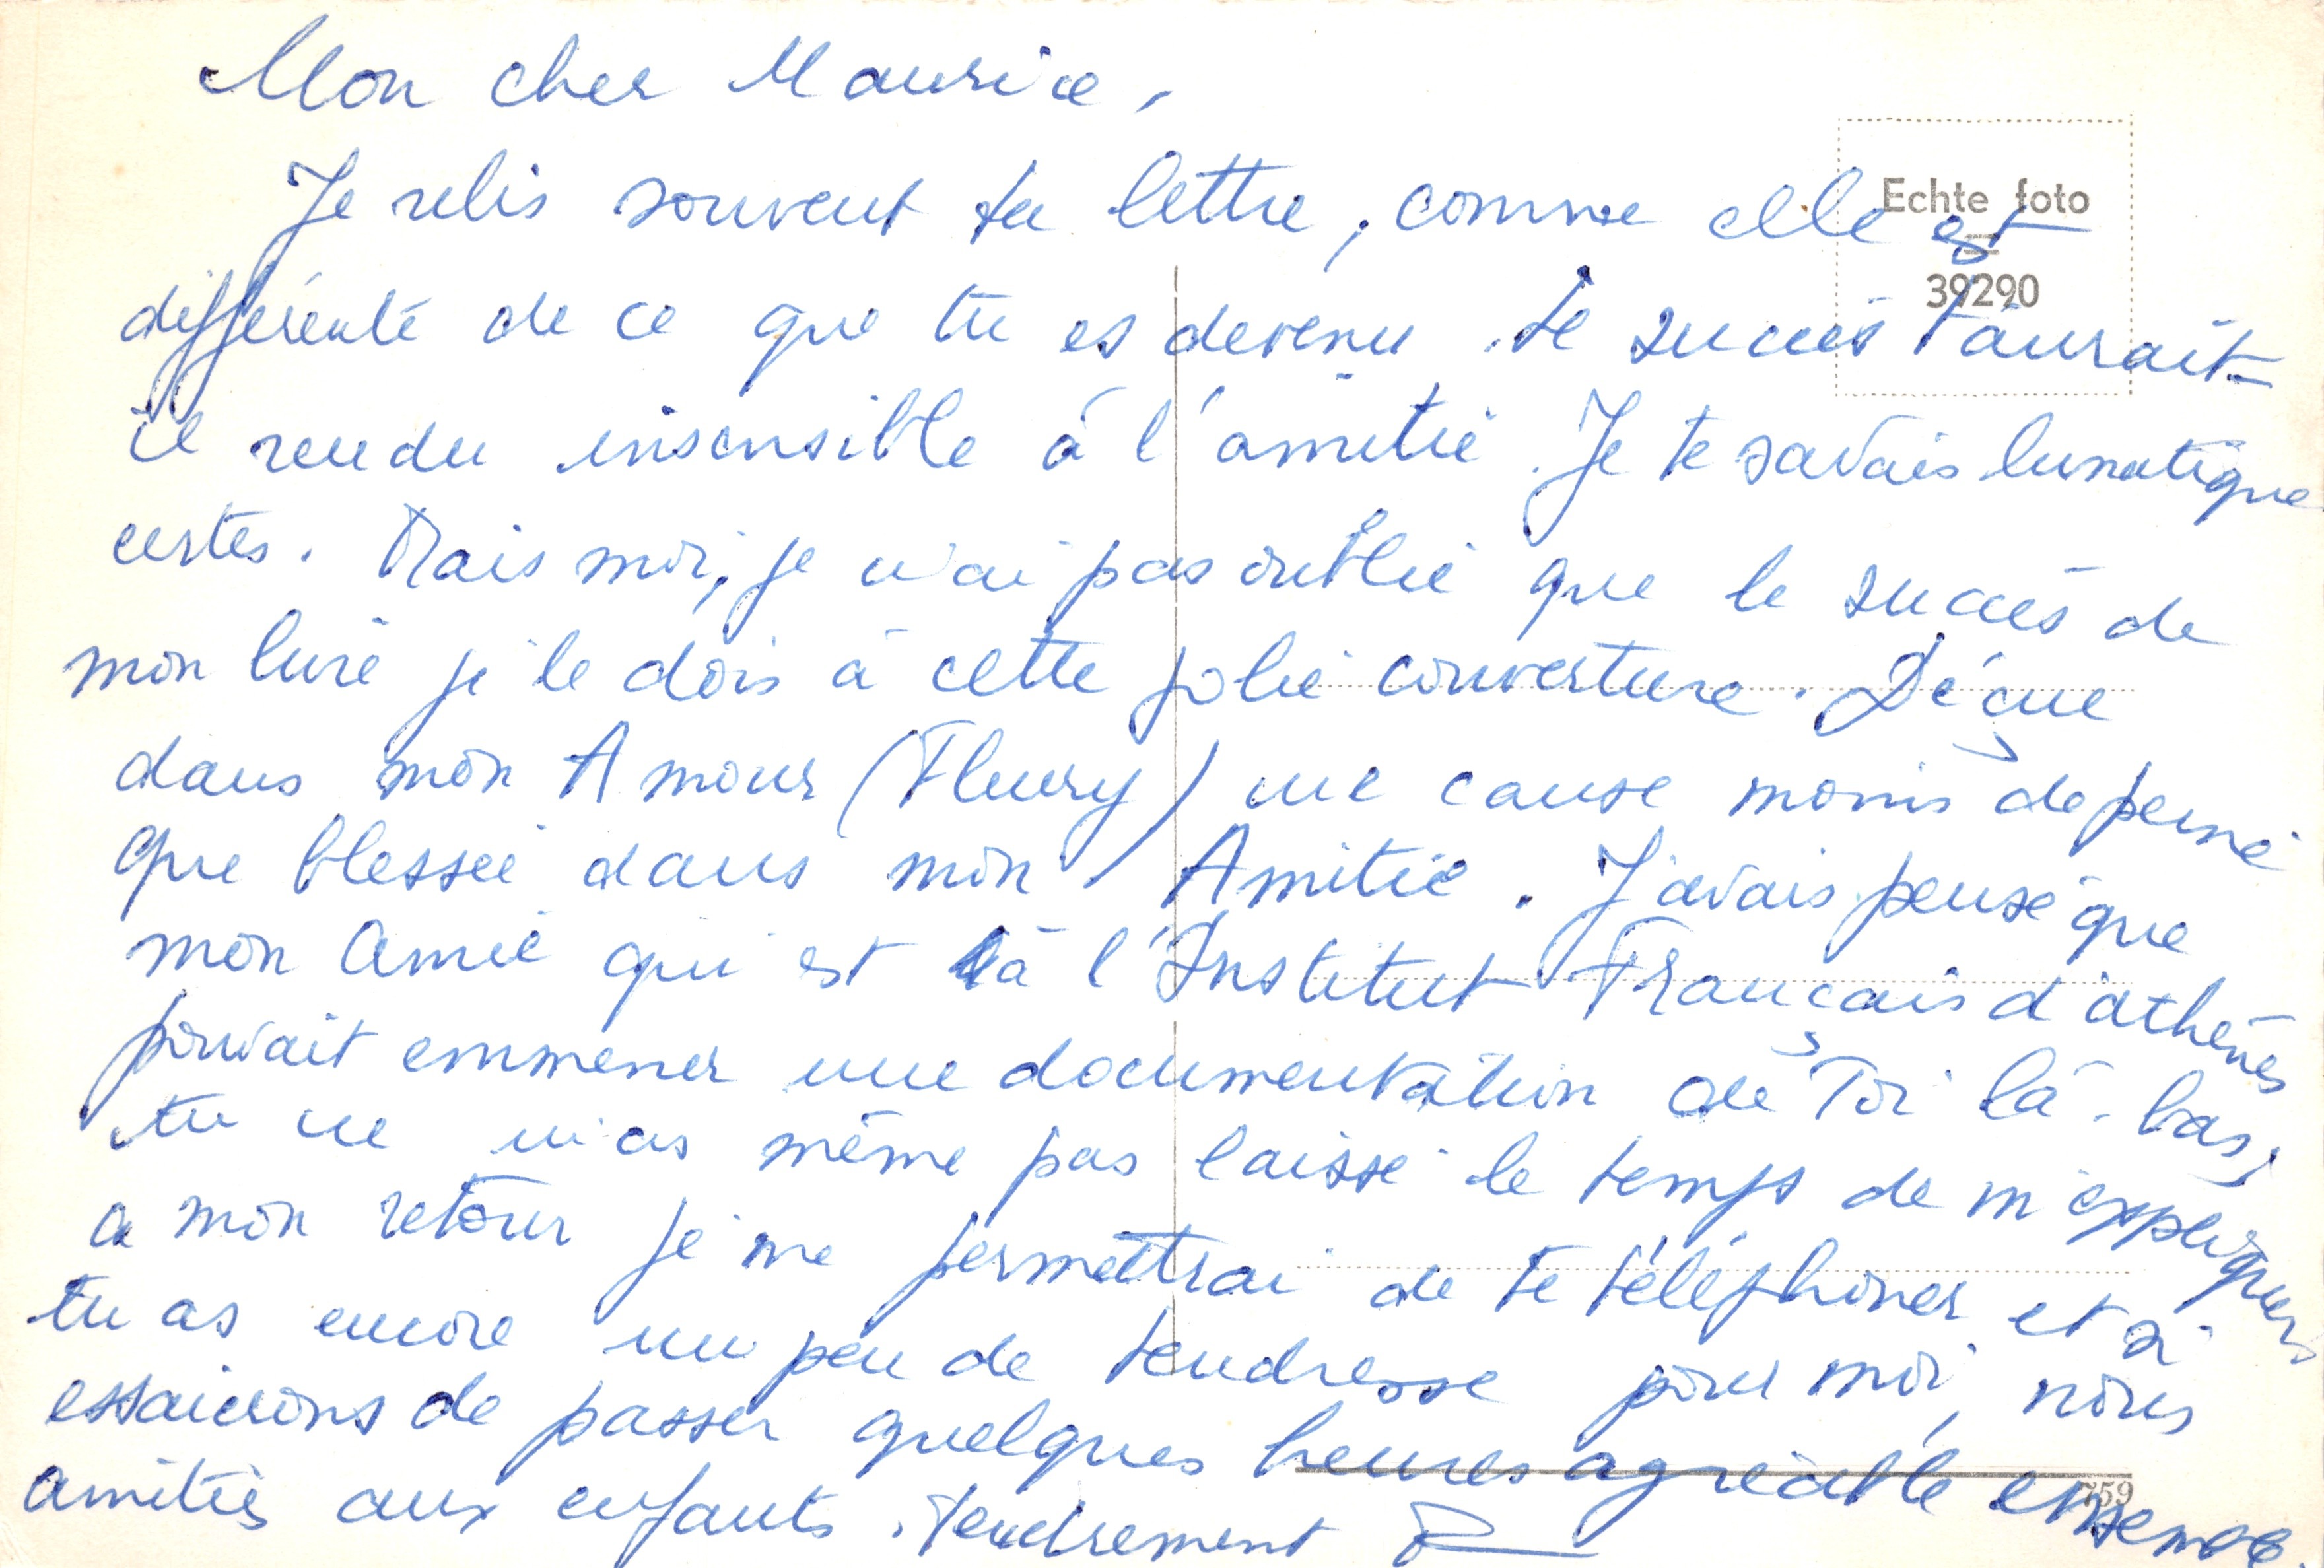 Mon cher Maurice,
Je relis souvent ta lettre, comme elle est
Echte foto
39290
différente de ce que tu es devenu. Le succès t'aurait-
il rendu insensible à l'amitié. Je te savais lunatique
certes. Mais moi, je n'ai pas oublié que le succès de
mon livre je le dois à cette jolie couverture. Déçue
dans mon Amour (Fleury) me cause moins de peine
que blessée dans mon Amitié. J'avais pensé que
mon Amie qui est à l'Institut Français d'athènes
pouvait emmener une documentation de Toi là-bas,
tu ne m'as même pas laissé le temps de m'expliquer
a mon retour je me permettrai de te téléphoner et si
tu as encore un peu de tendresse pour moi, nous
essaierons de passer quelques heures agréable ensemble
759
amitiés aux enfants. Tendrement